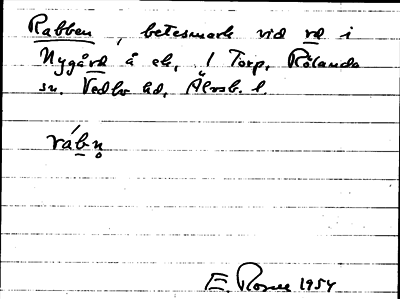 Rabben, betesmark vid vd i
Nygård å ek. 1 Torp, Rölanda
sn. Vedbo hd, Älvsb. l.
rábn̥
E. Rosell 1954